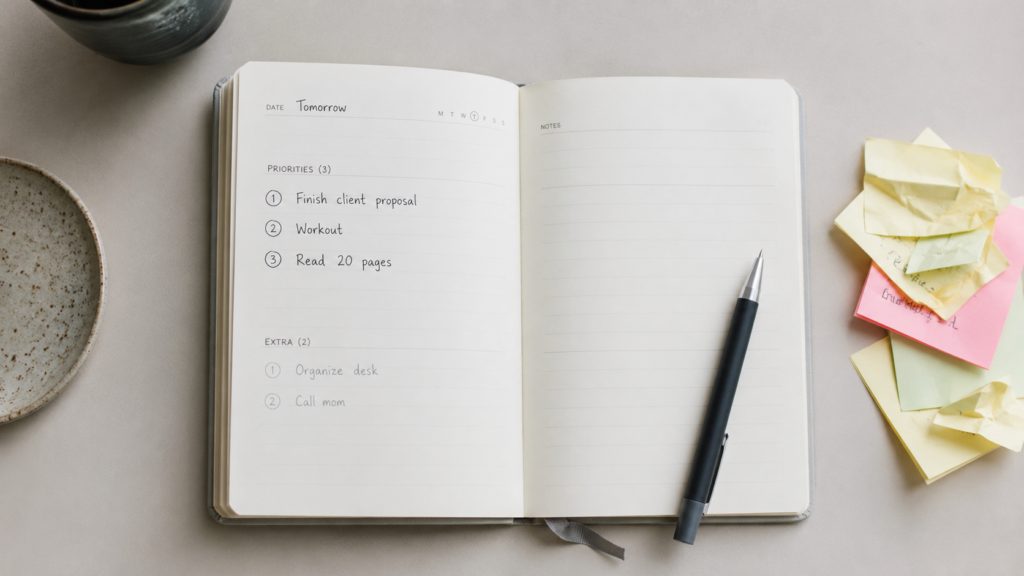 DATE Tomorrow
M T W T F S S
PRIORITIES (3)
1 Finish client proposal
2 Workout
3 Read 20 pages
EXTRA (2)
1 Organize desk
2 Call mom
NOTES